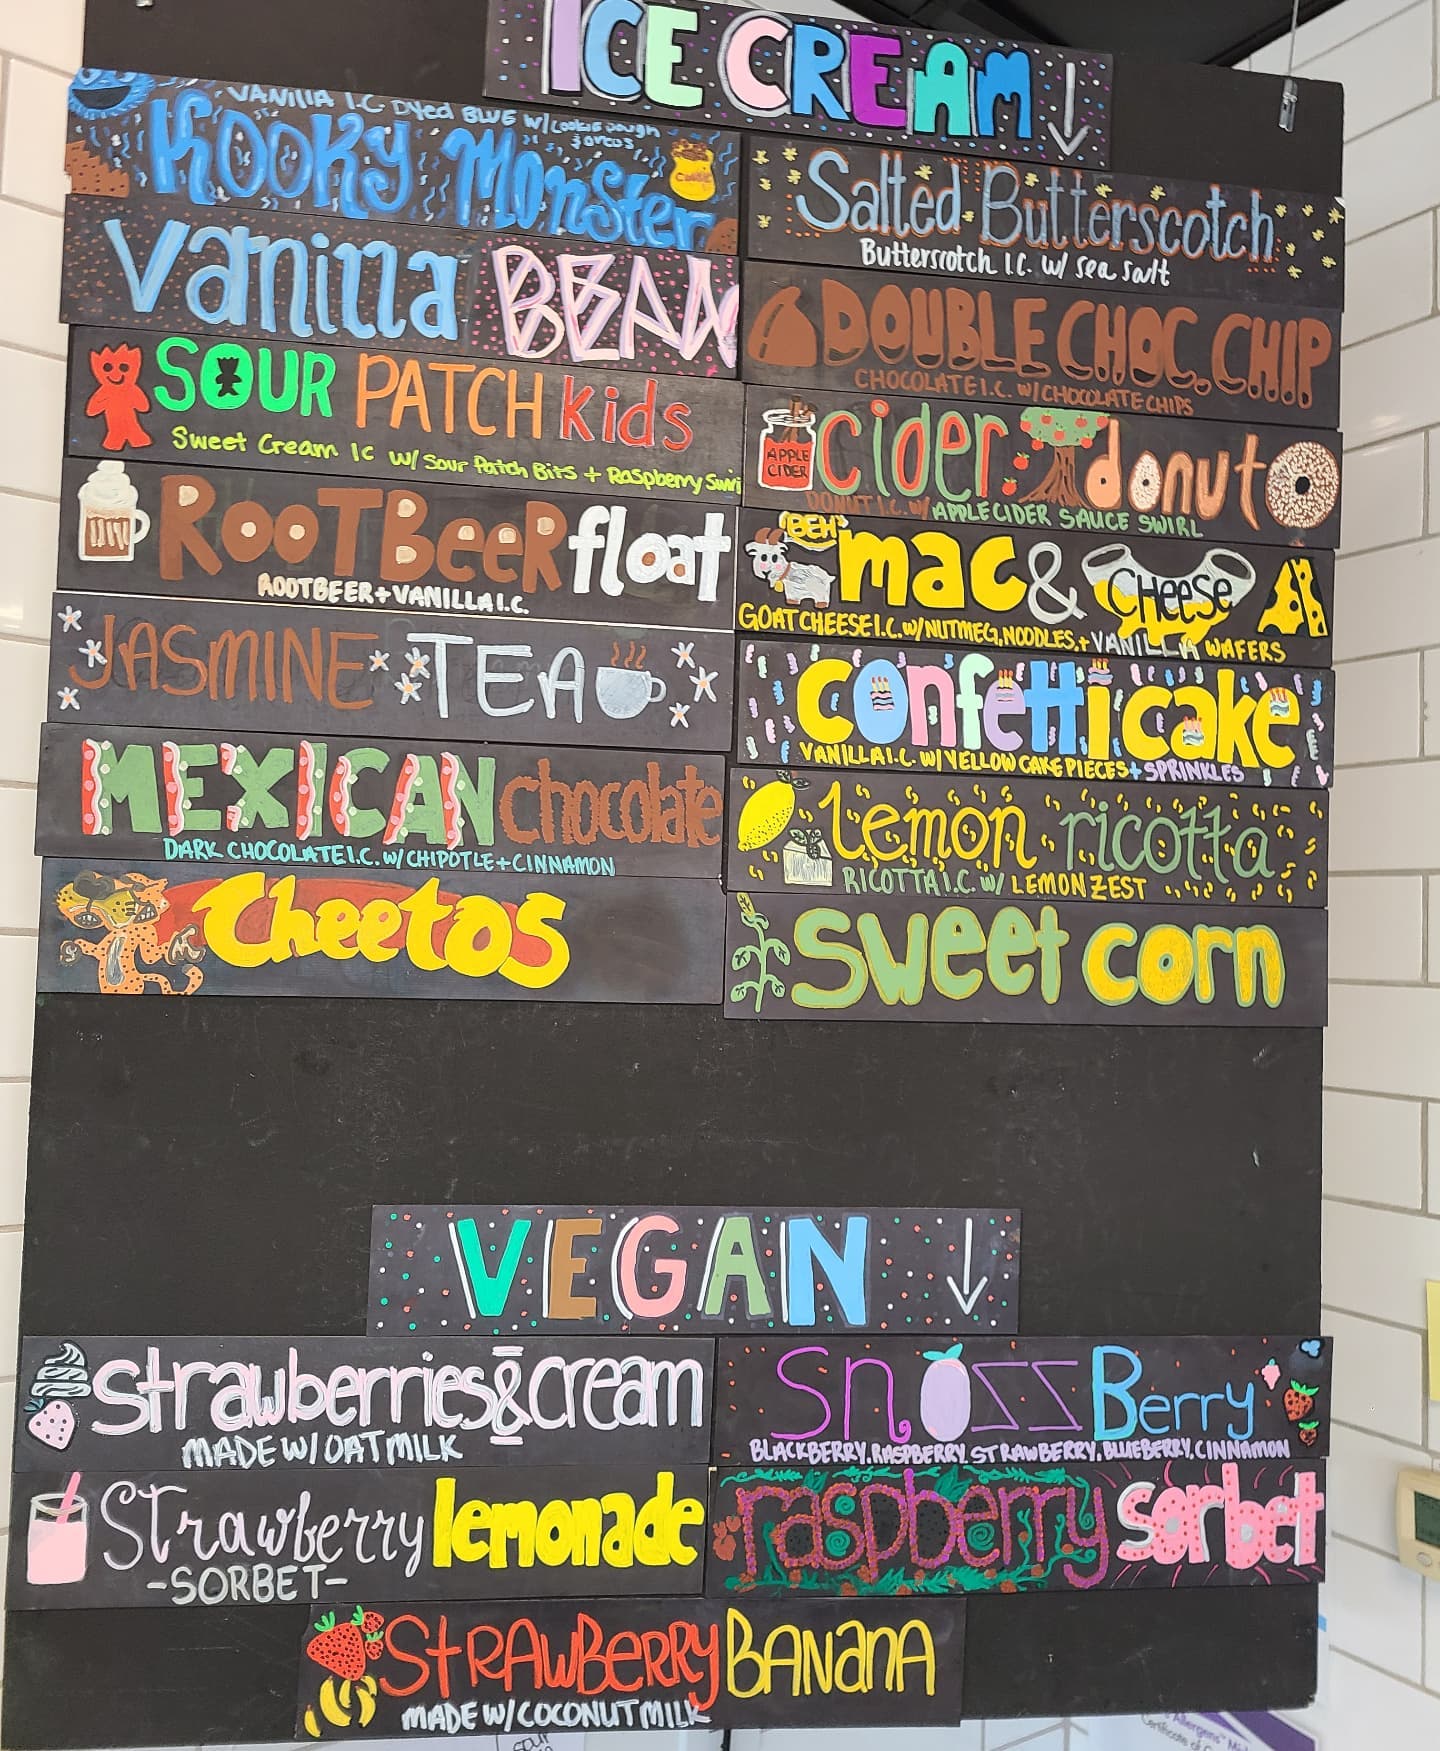 ICE CREAM
VANILLA I.C. Dyed BLUE W/ Cookie Dough
& Oreos
Kooky Monster
Vanilla BEAN
SOUR PATCH Kids
Sweet Cream IC W/ Sour Patch Bits + Raspberry Swirl
RooTBeeR float
ROOTBEER + VANILLA I.C.
JASMINE TEA
MEXICAN chocolate
DARK CHOCOLATE I.C. W/ CHIPOTLE + CINNAMON
Cheetos
Salted Butterscotch
Butterscotch I.C. w/ Sea Salt
DOUBLE CHOC. CHIP
CHOCOLATE I.C. W/ CHOCOLATE CHIPS
APPLE
CIDER
cider donut
DONUT I.C. W/ APPLE CIDER SAUCE SWIRL
"BEH"
mac & CHeeSe
GOAT CHEESE I.C. W/ NUTMEG, NOODLES, + VANILLA WAFERS
confetti cake
VANILLA I.C. W/ YELLOW CAKE PIECES + SPRINKLES
lemon ricotta
RICOTTA I.C. W/ LEMON ZEST
sweet corn
VEGAN
strawberries & cream
MADE W/ OATMILK
SnozzBerry
BLACKBERRY, RASPBERRY, STRAWBERRY, BLUEBERRY, CINNAMON
STrawberry lemonade
-SORBET-
raspberry sorbet
StRAwBeRRy BANaNA
MADE W/ COCONUT MILK